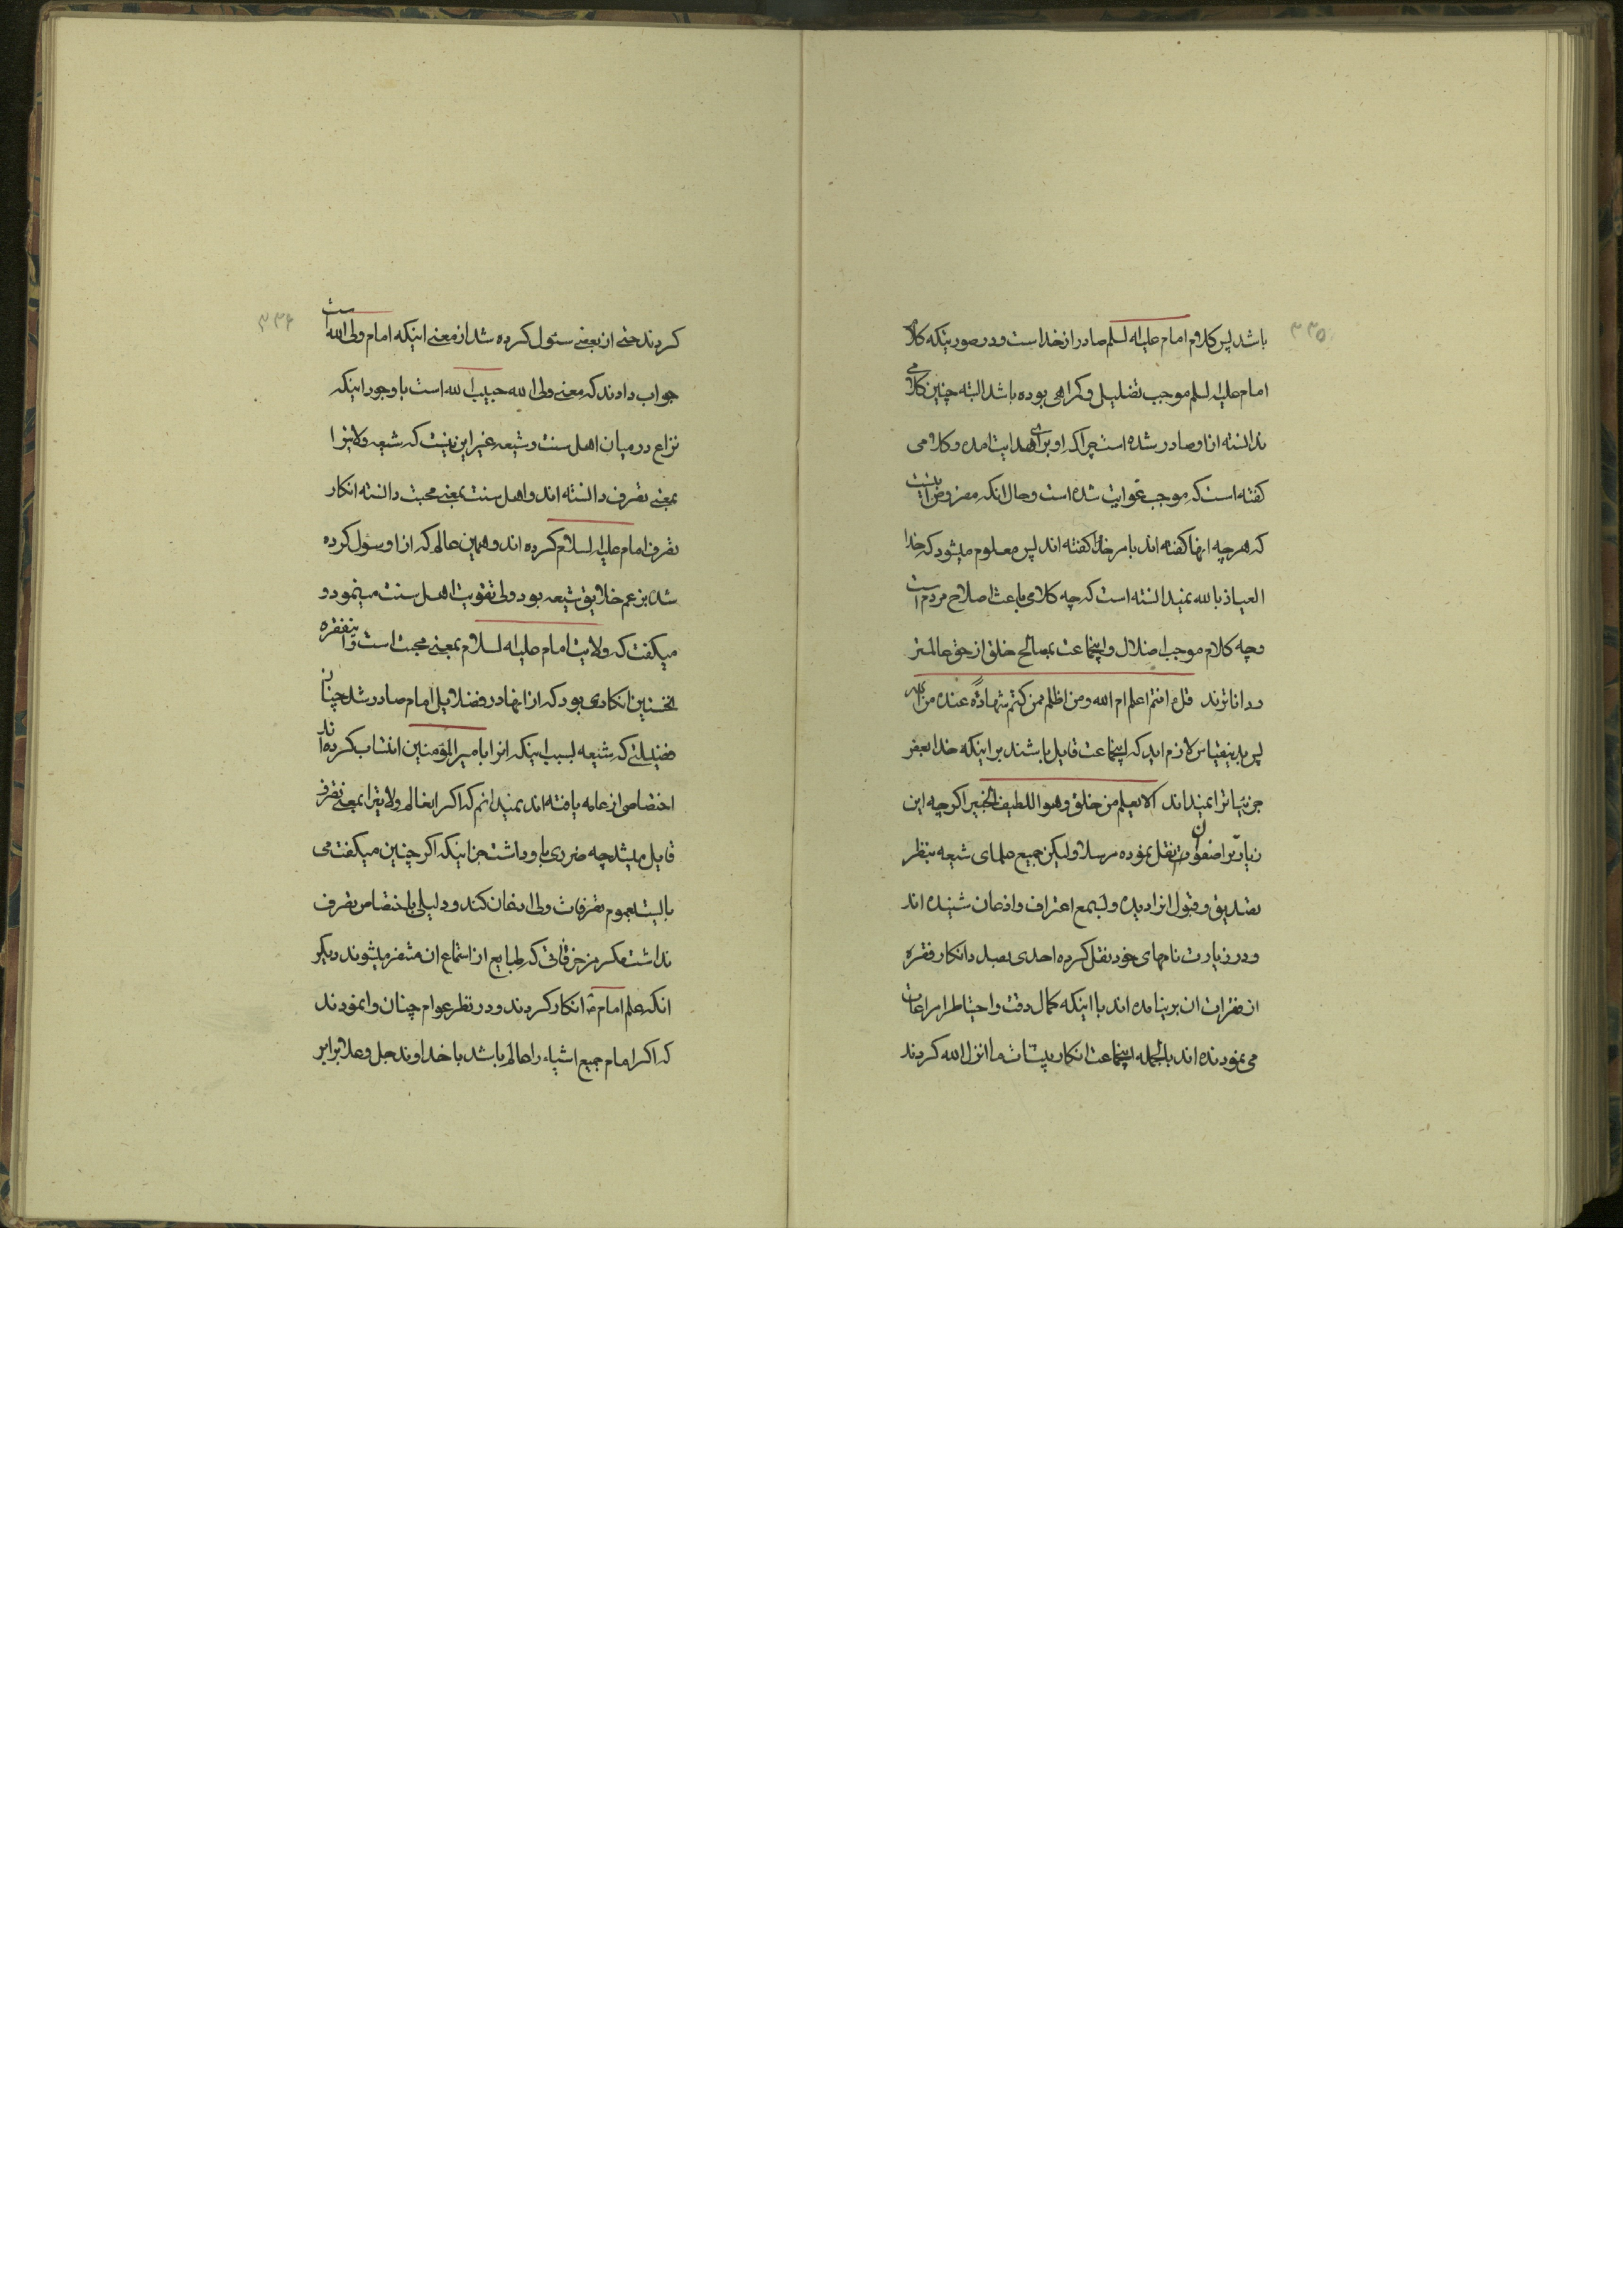 ۳۳۵
باشد پس کلام امام علیه لسلم صادر از خداست و در صورتیکه کلام
امام علیه لسلم موجب تضلیل و کمراهی بوده باشد البته چنین کلامی
ندانسته از او صادر شده است چرا که او برای هدایت امده و کلامی
کفته است که موجب غوایت شده است و حال انکه مفروض اینست
که هر چه انها کفته اند بامر خدا کفته اند پس معلوم میشود که خدا
العیاذ بالله نمیدانسته است که چه کلامی باعث اصلاح مردم است
و چه کلام موجب اضلال و اینجماعت بمصالح خلق از حق عالمتر
و داناترند قل ءانتم اعلم ام الله و من اظلم ممن کتم شهادة عنده من الله
پس بدینقیاس لازم اید که اینجماعت قایل باشند بر اینکه خدا بعضی
جزئیاترا نمیداند الا یعلم من خلق و هو اللطیف الخبیر اکر چه این
زیارترا صفوان نقل نموده مرسلا ولیکن جمیع علمای شیعه بنظر
تصدیق و قبول انرا دیده و بسمع اعتراف و اذعان شنیده اند
و در زیارت نامهای خود نقل کرده احدی بصدد انکار فقره
از فقرات ان بر نیامده اند با اینکه کمال دقت و احتیاط را مراعات
می نموده اند بالجمله اینجماعت انکار بیشتات ما انزل الله کردند
۳۳۶
کردند حتی از بعضی سئول کرده شد از معنی اینکه امام ولی الله است
جواب دادند که معنی ولی الله حبیب الله است با وجود اینکه
نزاع در میان اهل سنت و شیعه غیر این نیست که شیعه ولایترا
بمعنی تصرف دانسته اند و اهل سنت بمعنی محبت دانسته انکار
تصرف امام علیه لسلام کرده اند و همین عالم که از او سئول کرده
شد بزعم خلایق شیعه بود ولی تقویت اهل سنت مینمود و
میکفت که ولایت امام علیه لسلام بمعنی محبت است و اینفقره
نخستین انکاری بود که از انها در فضلایل امام صادر شد چنان
فضیلتی که شیعه بسبب اینکه انرا بامیر المؤمنین انتساب کرده اند
اختصاصی از عامه یافته اند نمیدانم که اکر اینعالم ولایترا بمعنی تصرف
قایل میشد چه ضرری باو داشت جز اینکه اکر چنین میکفت می
بایست بعموم تصرفات ولی اذعان کند و دلیلی باختصاص تصرف
نداشت مکر مزخرفاتی که طبایع از استماع ان متنفر میشوند دیکر
انکه علم امام ع انکار کردند و در نظر عوام چنان وانمودند
که اکر امام جمیع اشیاء را عالم باشد با خداوند جل و علا برابر